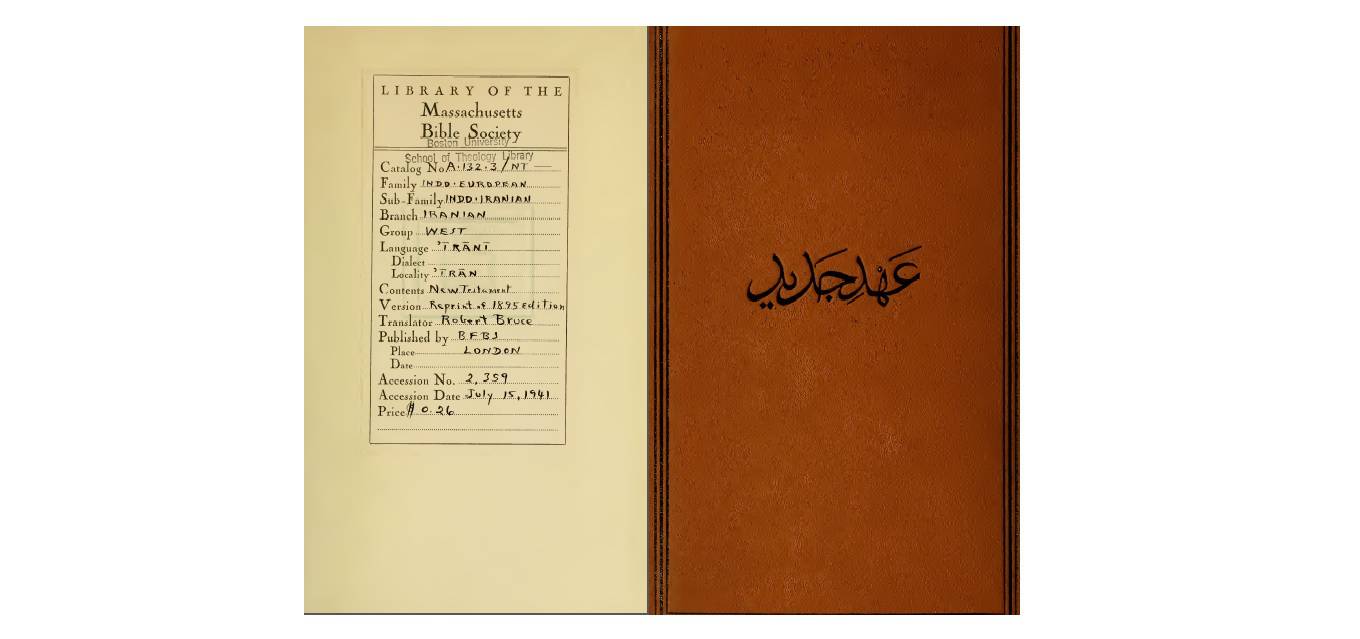 LIBRARY OF THE
Massachusetts
Bible Society
Boston University
School of Theology Library
Catalog No A.132.3/NT —
Family INDO-EUROPEAN
Sub-Family INDO-IRANIAN
Branch IRANIAN
Group WEST
Language 'ĪRĀNĪ
Dialect
Locality 'ĪRĀN
Contents New Testament
Version Reprint of 1895 edition
Translator Robert Bruce
Published by BFBS
Place LONDON
Date
Accession No. 2,359
Accession Date July 15, 1941
Price $0.26
عَهْدِ جَدِید